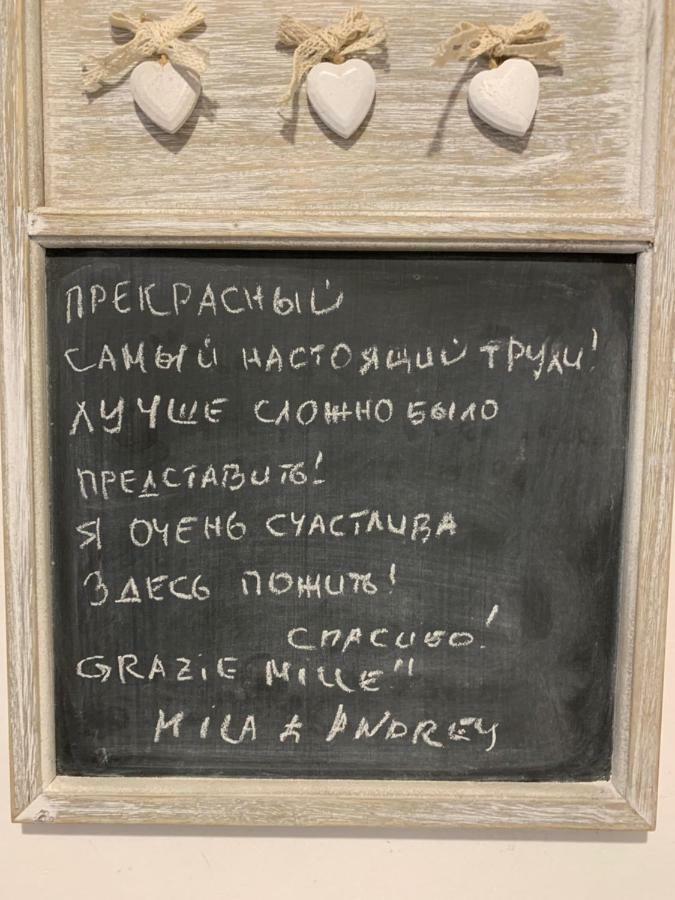 ПРЕКРАСНЫЙ
САМЫЙ НАСТОЯЩИЙ ТРУЛИ!
ЛУЧШЕ СЛОЖНО БЫЛО
ПРЕДСТАВИТЬ!
Я ОЧЕНЬ СЧАСТЛИВА
ЗДЕСЬ ПОЖИТЬ!
СПАСИБО!
GRAZIE MILLE"
MILA & ANDREY